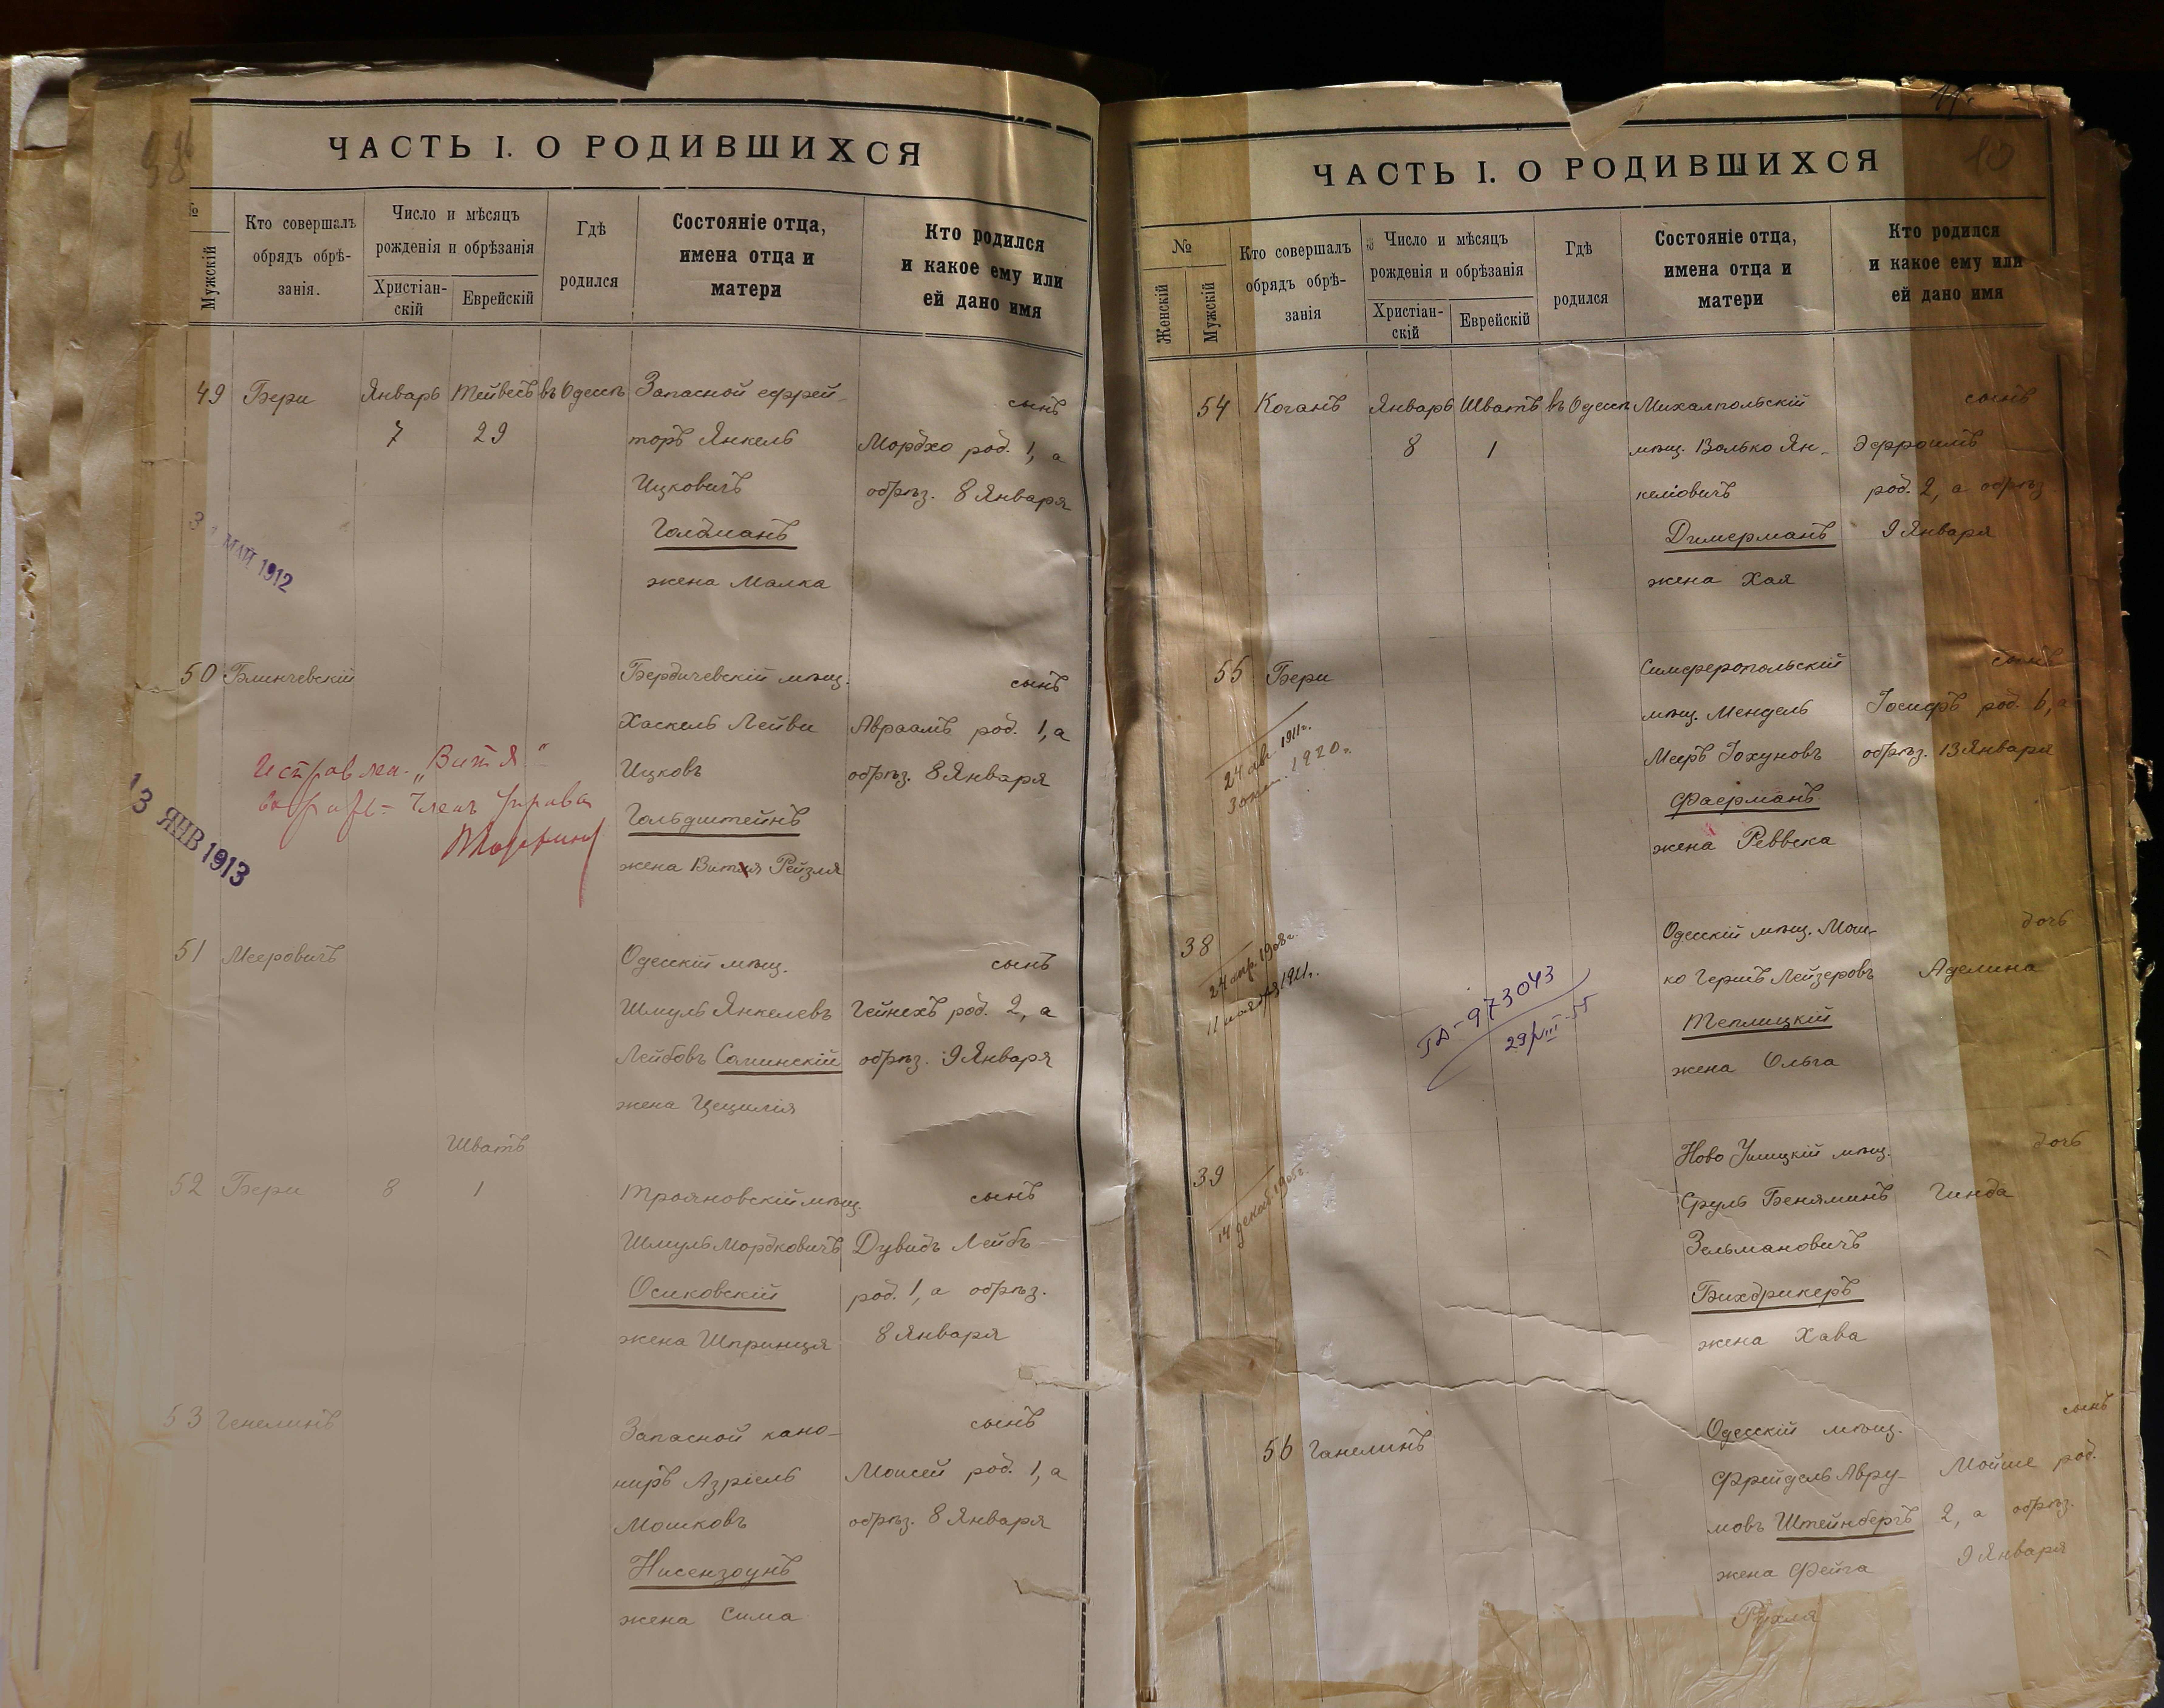 ЧАСТЬ I. О РОДИВШИХСЯ
№
Мужскій
Кто совершалъ
обрядъ обрѣ-
занія.
Число и мѣсяцъ
рожденія и обрѣзанія
Христіан-
скій
Еврейскій
Гдѣ
родился
Состояніе отца,
имена отца и
матери
Кто родился
и какое ему или
ей дано имя
49 Бери Январь Тейвесъ въ Одессѣ Запасной ефрей- сынъ
7 29 торъ Янкель Мордхо род. 1, а
Ицковичъ обрѣз. 8 Января
Голдманъ
жена Малка
МАЙ 1912
50 Блинчевскій Бердичевскій мѣщ. сынъ
Хаскель Лейви Авраамъ род. 1, а
Ицковъ обрѣз. 8 Января
Гольдштейнъ
жена Витя Рейзля
„Витя"
13 ЯНВ 1913
51 Мееровичъ Одесскій мѣщ. сынъ
Шмуль Янкелевъ Гейнехъ род. 2, а
Лейбовъ Саминскій обрѣз. 9 Января
жена Цецилія
Шватъ
52 Бери 8 1 Трояновскій мѣщ. сынъ
Шмуль Мордковичъ Дувидъ Лейбъ
Осиковскій род. 1, а обрѣз.
жена Шпринця 8 Января
53 Генелинъ Запасной кано- сынъ
ниръ Азріель Моисей род. 1, а
Мошковъ обрѣз. 8 Января
Нисензоунъ
жена Сима
10
ЧАСТЬ I. О РОДИВШИХСЯ
№
Женскій
Мужскій
Кто совершалъ
обрядъ обрѣ-
занія
Число и мѣсяцъ
рожденія и обрѣзанія
Христіан-
скій
Еврейскій
Гдѣ
родился
Состояніе отца,
имена отца и
матери
Кто родился
и какое ему или
ей дано имя
54 Коганъ Январь Шватъ въ Одессѣ Михалпольскій сынъ
8 1 мѣщ. Волько Ян- Эфроимъ
келіовичъ род. 2, а обрѣз
Димерманъ 9 Января
жена Хая
55 Бери Симферопольскій сынъ
мѣщ. Мендель Іосифъ род. 6, а
Меиръ Іохуновъ обрѣз. 13 Января
Фаерманъ
жена Реввека
24 авг. 1911г.
1920г.
38 Одесскій мѣщ. Мош- дочь
ко Гершъ Лейзеровъ Аделина
Теплицкій
жена Ольга
24 апр. 1908г.
11 ноября 1911г.
973043
29/VIII-55
39 Ново Ушицкій мѣщ. дочь
Сруль Беняминъ Гинда
Зельмановичъ
Бихдрикеръ
жена Хава
14 декаб. 1905г.
56 Ганелинъ Одесскій мѣщ. сынъ
Фрейдель Авру- Мойше род.
мовъ Штейнбергъ 2, а обрѣз.
жена Фейга 9 Января
Рухля